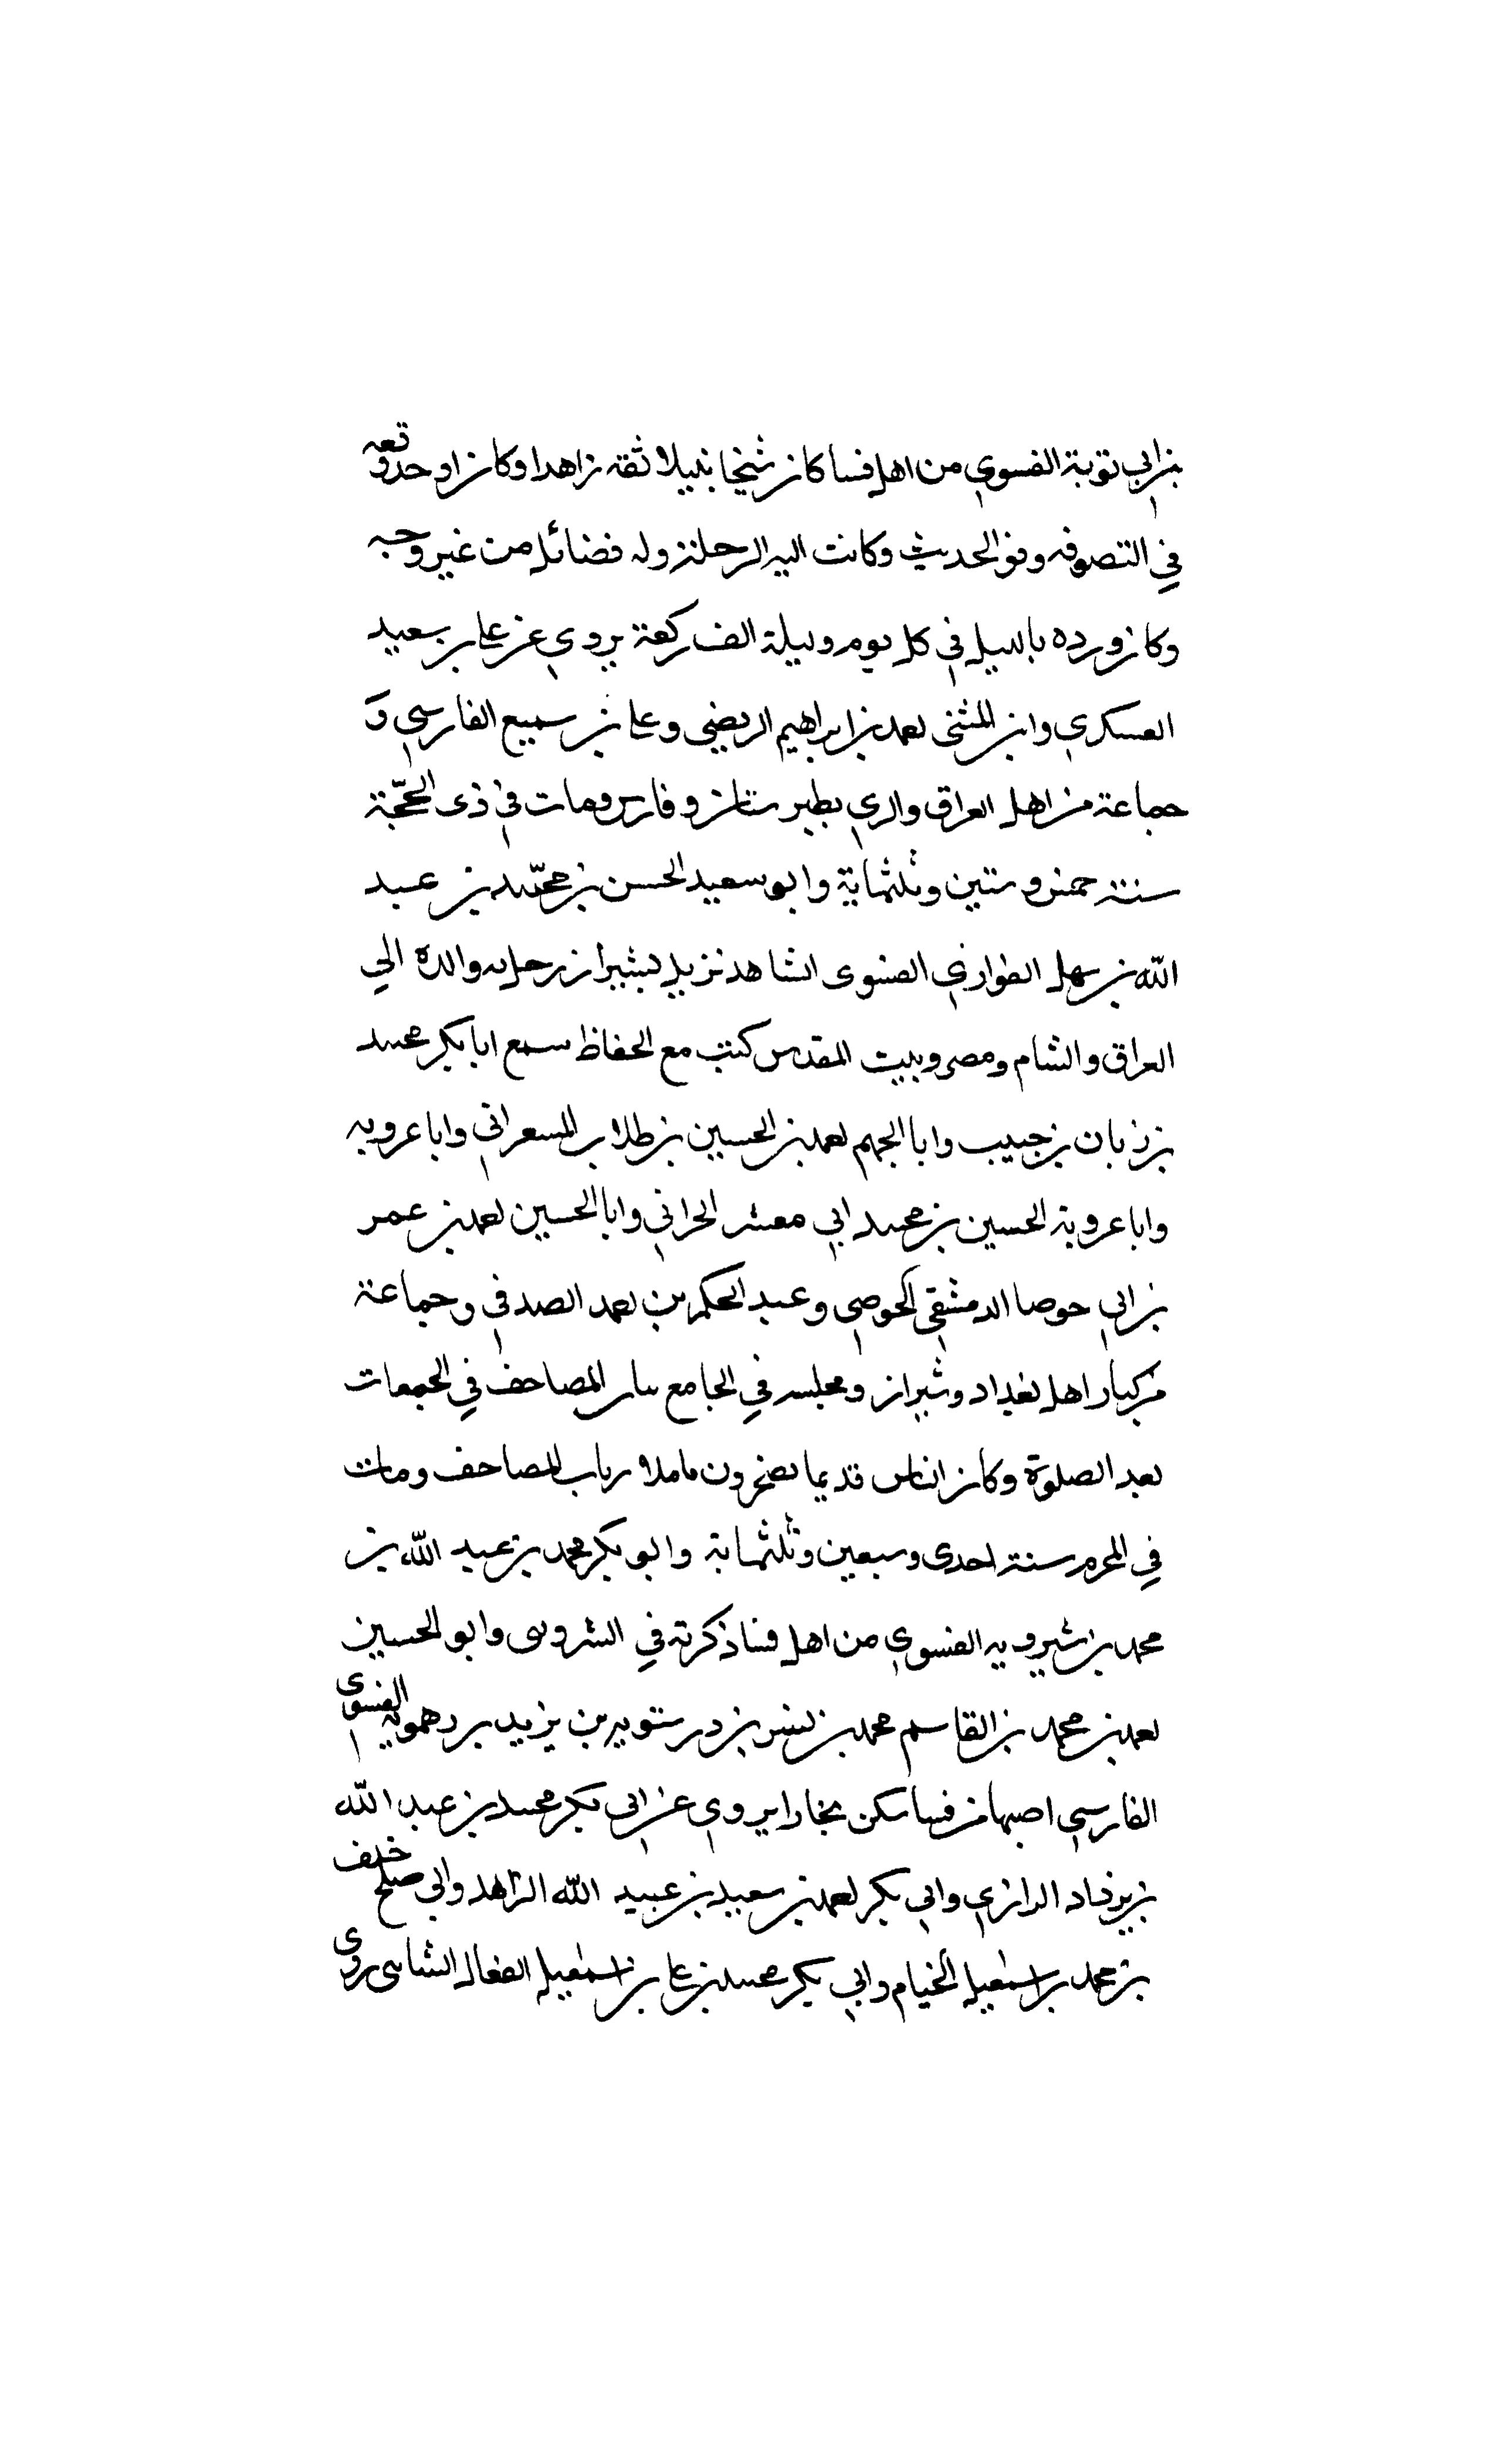 بن ابي توبة الفسوي من اهل فسا كان شيخا نبيلا ثقه زاهدا وكان اوحد وقته
في التصوف وفي الحديث وكانت اليه الرحلة وله فضائل من غير وجه
وكان ورده بالليل في كل يوم وليلة الف ركعة يروي عن علي بن سعيد
العسكري وابن المثنى احمد بن ابراهيم الربضي وعلي بن سميع الفارسي و
جماعة من اهل العراق والري بطبرستان وفارس ومات في ذى الحجّة
سنة خمس وستين وثلثماية وابو سعيد الحسن بن محمّد بن عبد
الله بن سهل الطوابي الفسوى الشاهد نزيل بشيراز رحل به والده الي
العراق والشام ومصر وبيت المقدس كتب مع الحفاظ سمع ابا بكر محمد
بن زبان بن حبيب وابا الجهم احمد بن الحسين بن طلاب المسعراني وابا عروبه
وابا عروبة الحسين بن محمد ابي معشر الحراني وابا الحسين احمد بن عمر
بن ابي حوصا الدمشقي الحوصي وعبد الحكم بن احمد الصدفي وجماعة
من كبار اهل بغداد وشيراز ومجلسه في الجامع المصاحف في الجمعات
بعد الصلوة وكان الناس قديما باب المصاحف ومات
في المحرم سنة احدى وسبعين وثلثماية وابو بكر محمد بن عبد الله بن
محمد بن شيرويه الفسوي من اهل فسا ذكرته في الشروى وابو الحسين
احمد بن محمد بن القاسم محمد بن بن درستويه بن يزيد بن دهمويه الفسوى
الفارسي اصبهان فسا سكن بخارا يروي عن ابي بكر محمد بن عبد الله
بن يزداد الرازي وابي بكر احمد بن سعيد بن عبيد الله الزاهد وابي صلح خلف
بن محمد بن اسمعيل الخيام وابي بكر محمد بن علي بن اسمعيل القفال الشاسى روى